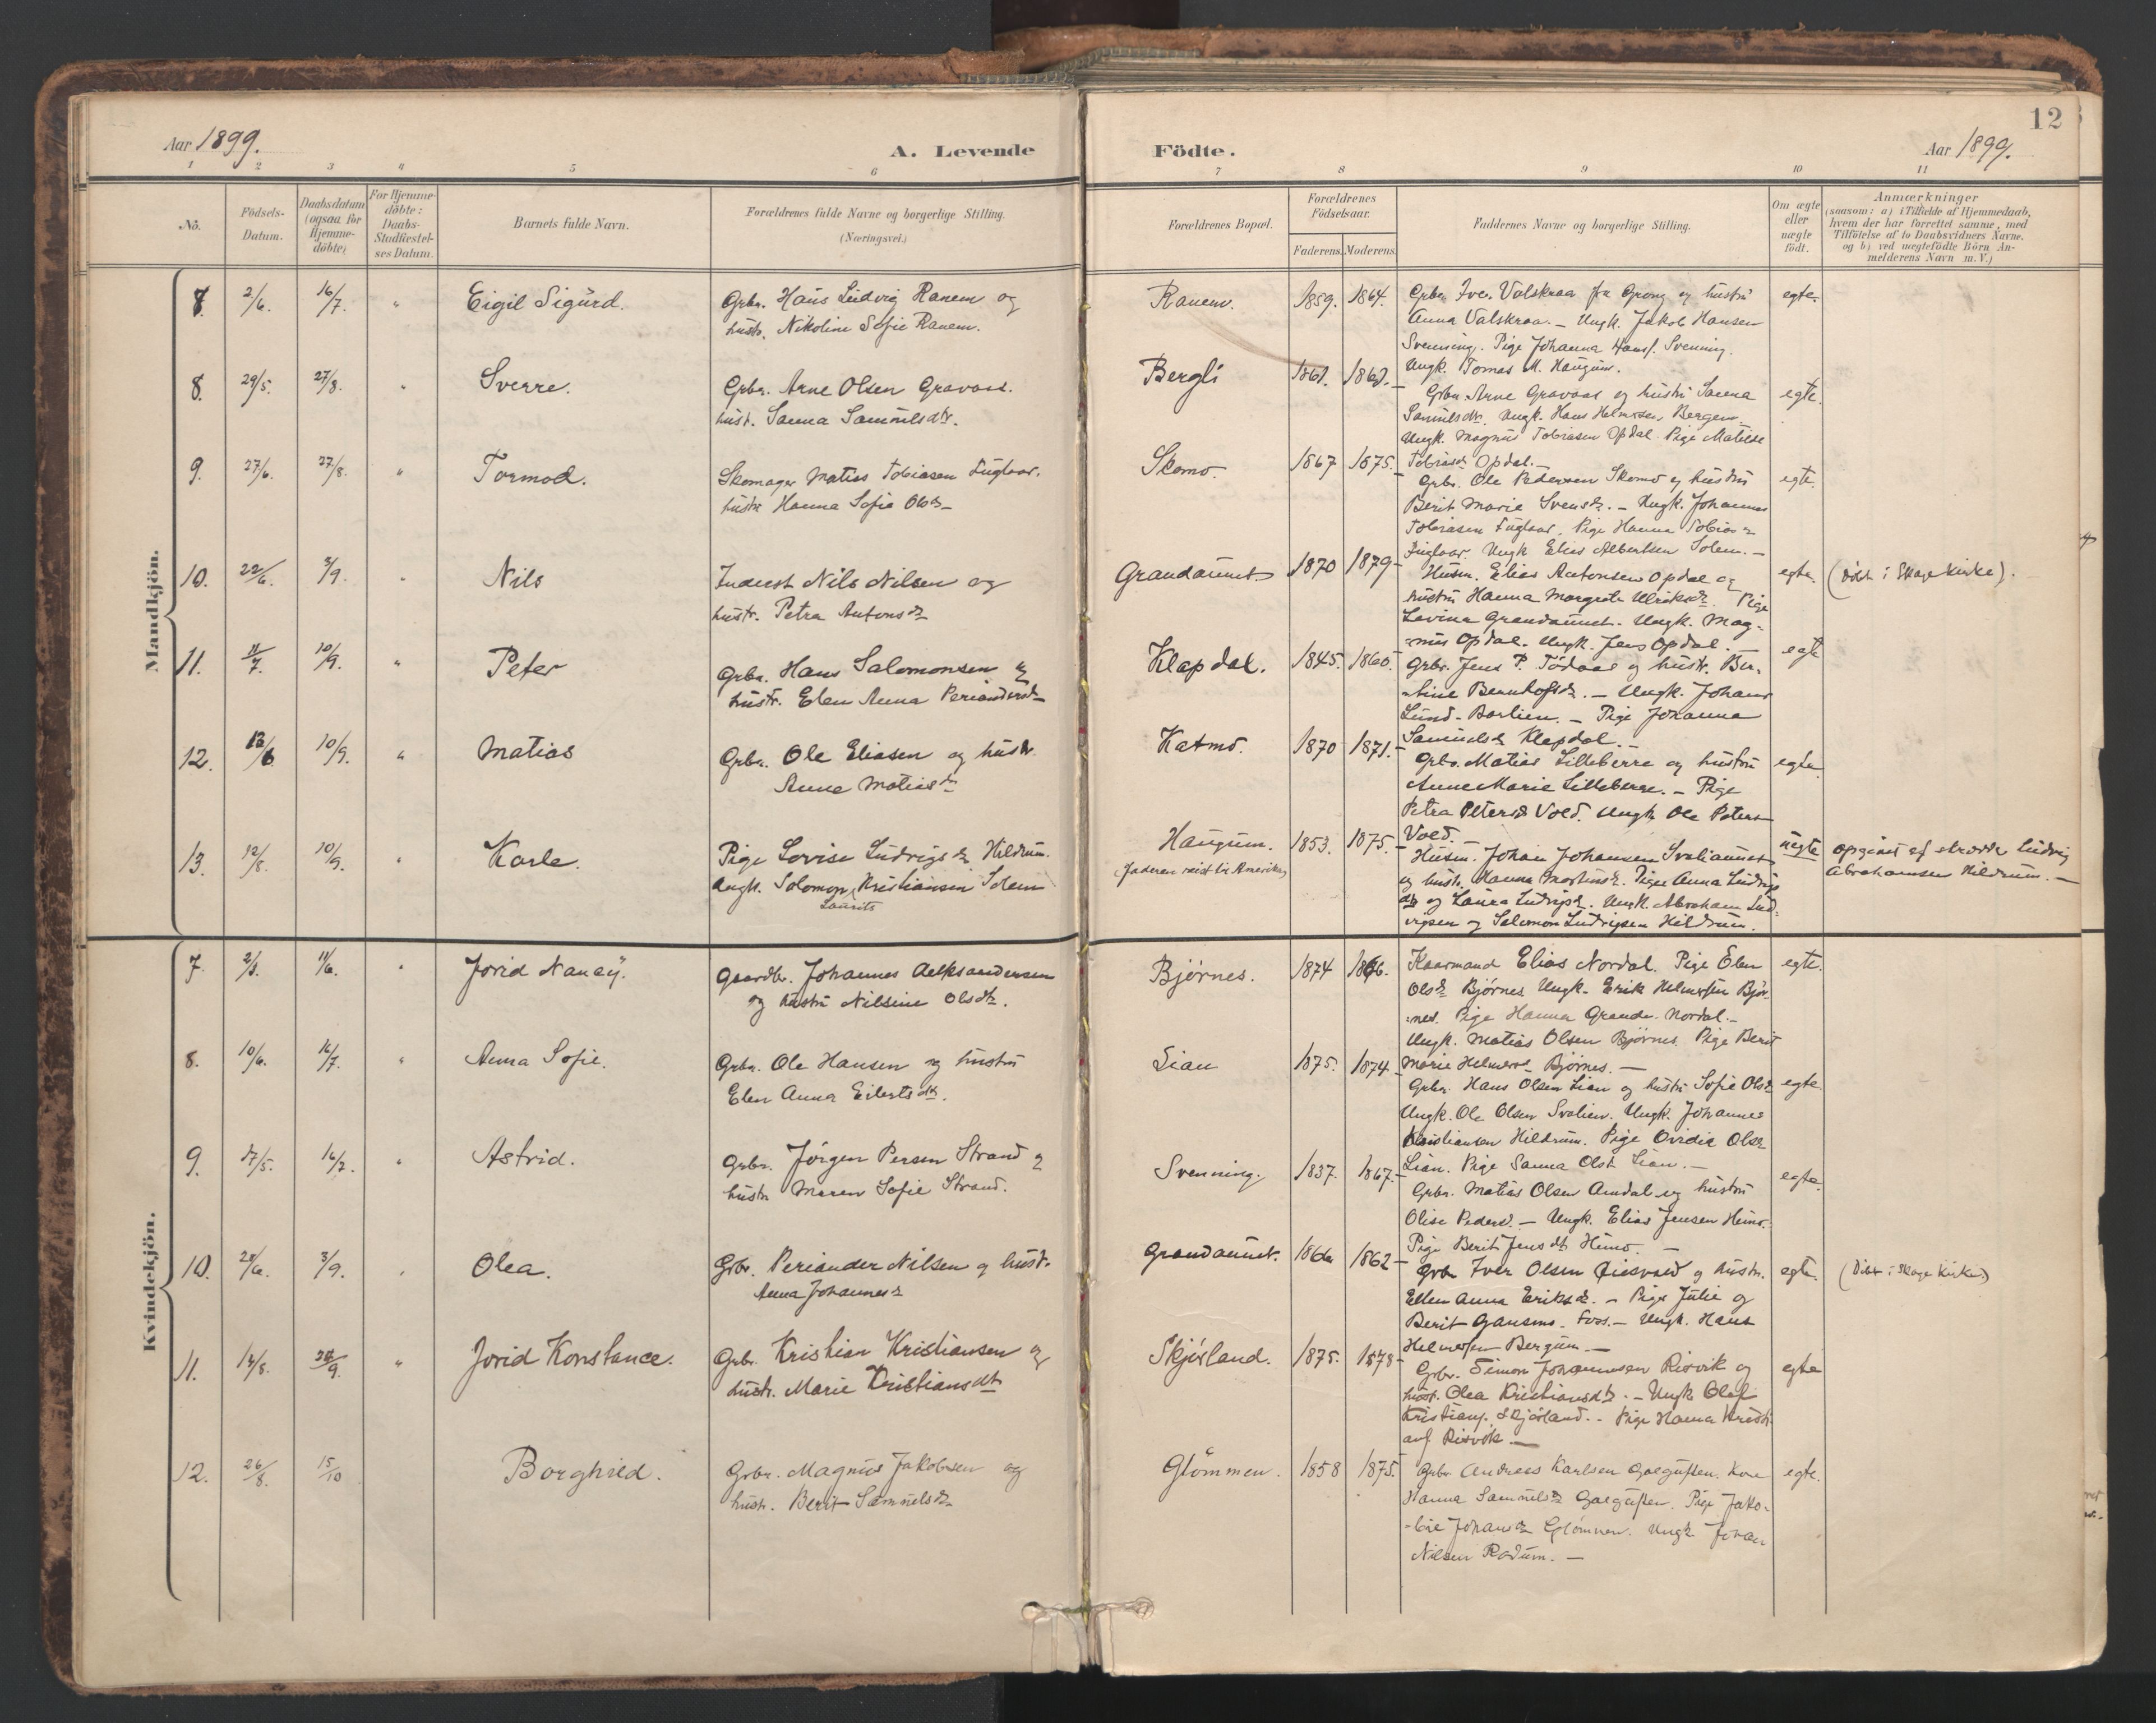 Aar 1899.
A. Levende
Födte.
Aar 1899.
12
1 2 3 4 5 6 7 8 9 10 11
No.
Födsels-
Datum.
Daabsdatum
(ogsaa for
Hjemme-
döbte)
For Hjemme-
döbte:
Daabs-
Stadfæstel-
ses Datum.
Barnets fulde Navn.
Forældrenes fulde Navne og borgerlige Stilling.
(Næringsvei.)
Forældrenes Bopæl.
Forældrenes
Födselsaar.
Faderens. Moderens.
Faddernes Navne og borgerlige Stilling.
Om ægte
eller
uægte
födt.
Anmærkninger
(saasom: a) i Tilfælde af Hjemmedaab,
hvem der har forrettet samme, med
Tilföielse af to Daabsvidners Navne.
og b) ved uægtefödte Börn An-
melderens Navn m. V.)
Mandkjön.
7. 2/6. 16/7. " Eigil Sigurd. Grbr. Hans Ludvig Ranem og
hustr. Nikoline Sofie Ranem.
Ranem. 1859. 1864. Grbr. Iver Valskraa fra Grong og hustru
Anna Valskraa. - Ungk. Jakob Hansen
Svenning. Pige Johanna Hansf. Svenning.
Ungk. Tomas M. Haugum.
egte.
8. 29/5. 27/8. " Sverre. Grbr. Arne Olsen Gravaas.
hust. Sanna Samuelsdtr.
Bergli 1861. 1861.
Grbr. Arne Gravaas og hustru Sanna
Samuelsdtr. Ungk. Hans Helmersen, Bergem
Ungk. Magnus Tobiasen Opdal. Pige Matilde
Tobiasd. Opdal.
egte.
9. 27/6. 27/8. " Tormod. Skomager Matias Tobiasen Fuglaar.
hustr Hanna Sofie Olsdr
Skomo. 1867 1875.
Grbr. Ole Pedersen Skomo og hustru
Berit Marie Svensdr. - Ungk. Johannes
Tobiasen Fuglaar. Pige Hanna Tobiasdr
Fuglaar. Ungk Elias Albertsen Solem. -
egte.
10. 22/6. 3/9. " Nils Inderst Nils Nilsen og
hustr. Petra Antonsdr
Grandaunet 1870 1879
Husm. Elias Antonsen Opdal og
hustru Hanna Margrete Ulriksdr. Pige
Lovina Grandaunet. Ungk. Mag-
nus Opdal. Ungk. Jens Opdal. -
egte. (Döbt i Skage Kirke).
11. 11/7. 10/9. " Peter Grbr. Hans Salomonsen og
hustr. Elen Anna Periandersdr
Klapdal. 1845. 1860. Grbr. Jens P. Tödaas og hustr. Ber-
ntine Bernhofsdr. - Ungk. Johans
Lund-Barlien. - Pige Johanna
Samuelsdr Klapdal. -
egte
12. 13/6 10/9. " Matias Grbr. Ole Eliasen og hustr.
Anne Matiasdr
Katmo. 1870 1871.
Grbr. Matias Lilleberre og hustru
Anne Marie Lilleberre. - Pige
Petra Petersdr Vold. Ungk. Ole Peters
Vold. -
egte
13. 12/8. 10/9. " Karle. Pige Lovise Ludvigsdr Hildrum.
Ungk. Solomon Kristiansen Solem
Laurits
Haugum. 1853. 1875.
(Faderen reist til Amerika)
Husm. Johan Johansen Svaliaunet
og hustr. Hanna Martinsdr. Piger Anna Ludvigs
dr og Laura Ludvigsdr. Ungk. Abraham Lud-
vigsen og Salomon Ludvigsen Hildrum.
uegte opgivet af skrædder Ludvig
Abrahamsen Hildrum. -
Kvindekjön.
7. 2/3. 11/6. " Jorid Nancy. Gaardbr. Johannes Aleksandersen
og hustru Nilsine Olsdtr.
Bjørnes. 1874 1866. Kaarmand Elias Nordal. Pige Elen
Olsdr Bjørnes. Ungk. Erik Helmersen Bjør-
nes. Pige Hanna Grande. Nordal. -
Ungk. Matias Olsen Bjørnes. Pige Berit
Marie Helmersdr Bjørnes. -
egte.
8. 10/6. 16/7. " Anna Sofie. Grbr. Ole Hansen og hustru
Elen Anna Eilertsdtr.
Lian 1875. 1874
Grbr. Hans Olsen Lian og hustru Sofie Olsdr
Ungk. Ole Olsen Svalien. Ungk. Johannes
Kristiansen Hildrum. Pige Ovidia Olsdr
Lian. Pige Sanna Olsdt Lian. -
egte
9. 17/5. 16/7. " Astrid. Grbr. Jörgen Persen Strand og
hustr Maren Sofie Strand.
Svenning. 1837. 1867.
Grbr. Matias Olsen Amdal og hustru
Olise Pedersd. - Ungk. Elias Jensen Himo.
Pige Berit Jensdt Himo. -
egte.
10. 28/6. 3/9. " Olea. Grbr. Periander Nilsen og hust.
Anna Johannesdr
Grandaunet. 1862
Grbr Iver Olsen og hustr.
Ellen Anna Eriksdr. - Pige Julie og
Berit Foss. - Ungk. Hans
Helmersen Bergum. -
egte. (Döbt i Skage Kirke)
11. 14/8. 24/9. " Jorid Konstance. Grbr. Kristian Kristiansen og
hustr. Marie Kristiansdtr
Skjörland. 1875. 1878
Grbr. Simon Johannesen Risvik og
hust. Olea Kristiansdtr. - Ungk. Olaf
Kristiansf. Skjörland. - Pige Hanna Kristi-
ansf. Risvik. -
egte
12. 26/8. 15/10 Borghild. Grbr. Magnus Jakobsen og
hustr. Berit Samuelsdr
Glömmen. 1858 1875. Grbr Andreas Karlsen Galguften. Kone
Hanna Samuelsdr Galguften. Pige Jako-
bie Johansdr Glömmen. Ungk Johan
Nilsen Rodum. -
egte.